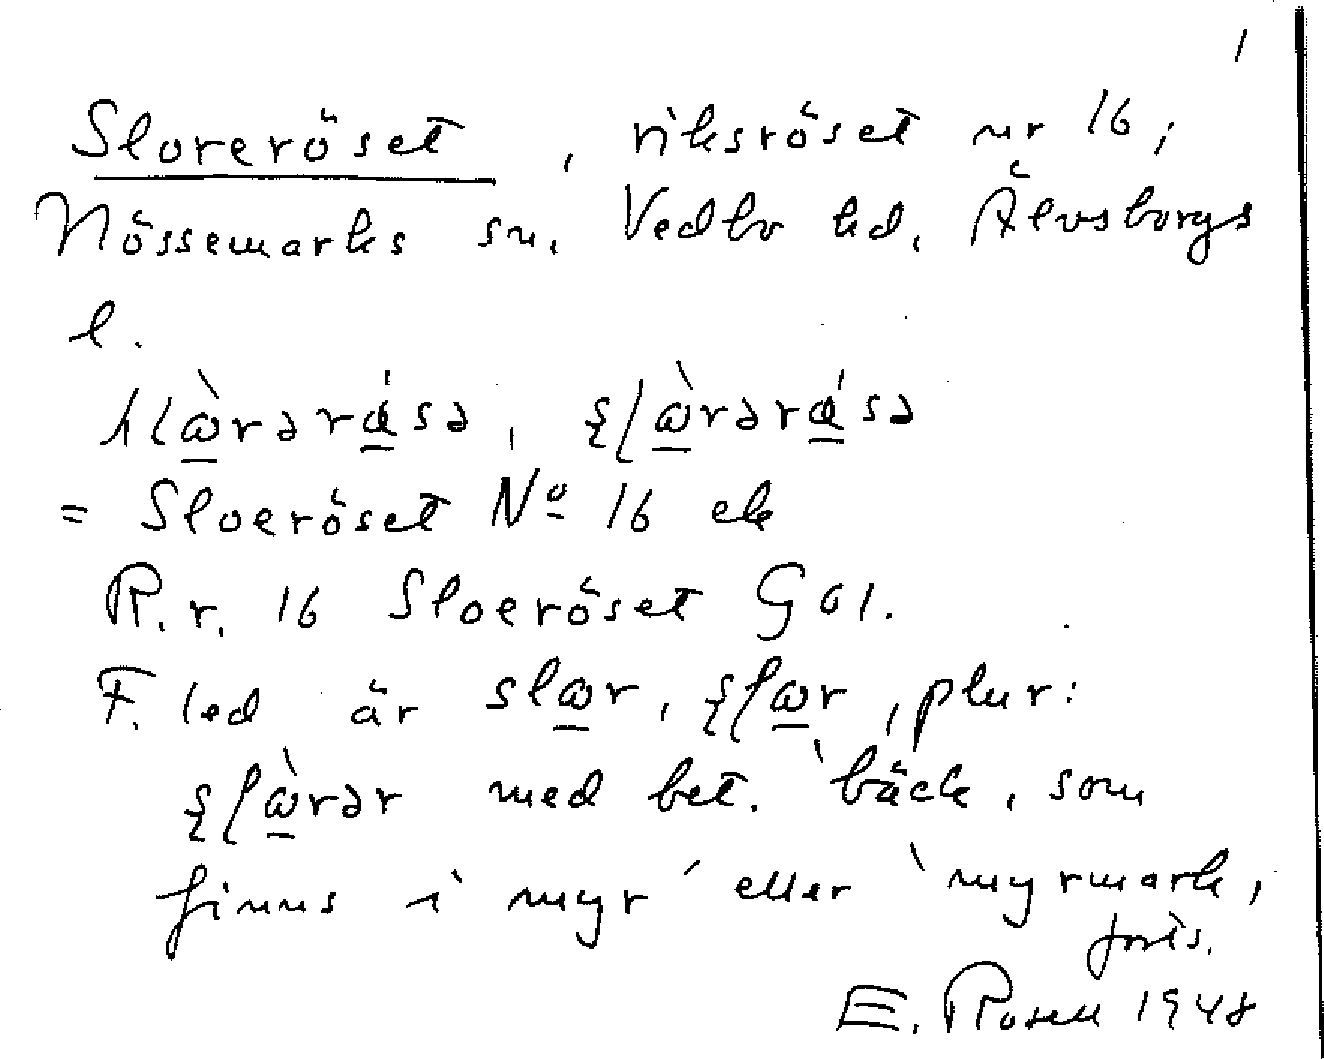 1
Sloreröset, riksröset nr 16,
Nössemarks sn, Vedbo hd, Älvsborgs
l.
= Sloeröset Nº 16 ek
R.r. 16 Sloeröset G61.
F. led är slɷr, ʂɭɷr, plur:
ʂɭɷ̀rər med bet. 'bäck, som
finns i myr' eller 'myrmark,
forts.
E. Rosell 1948